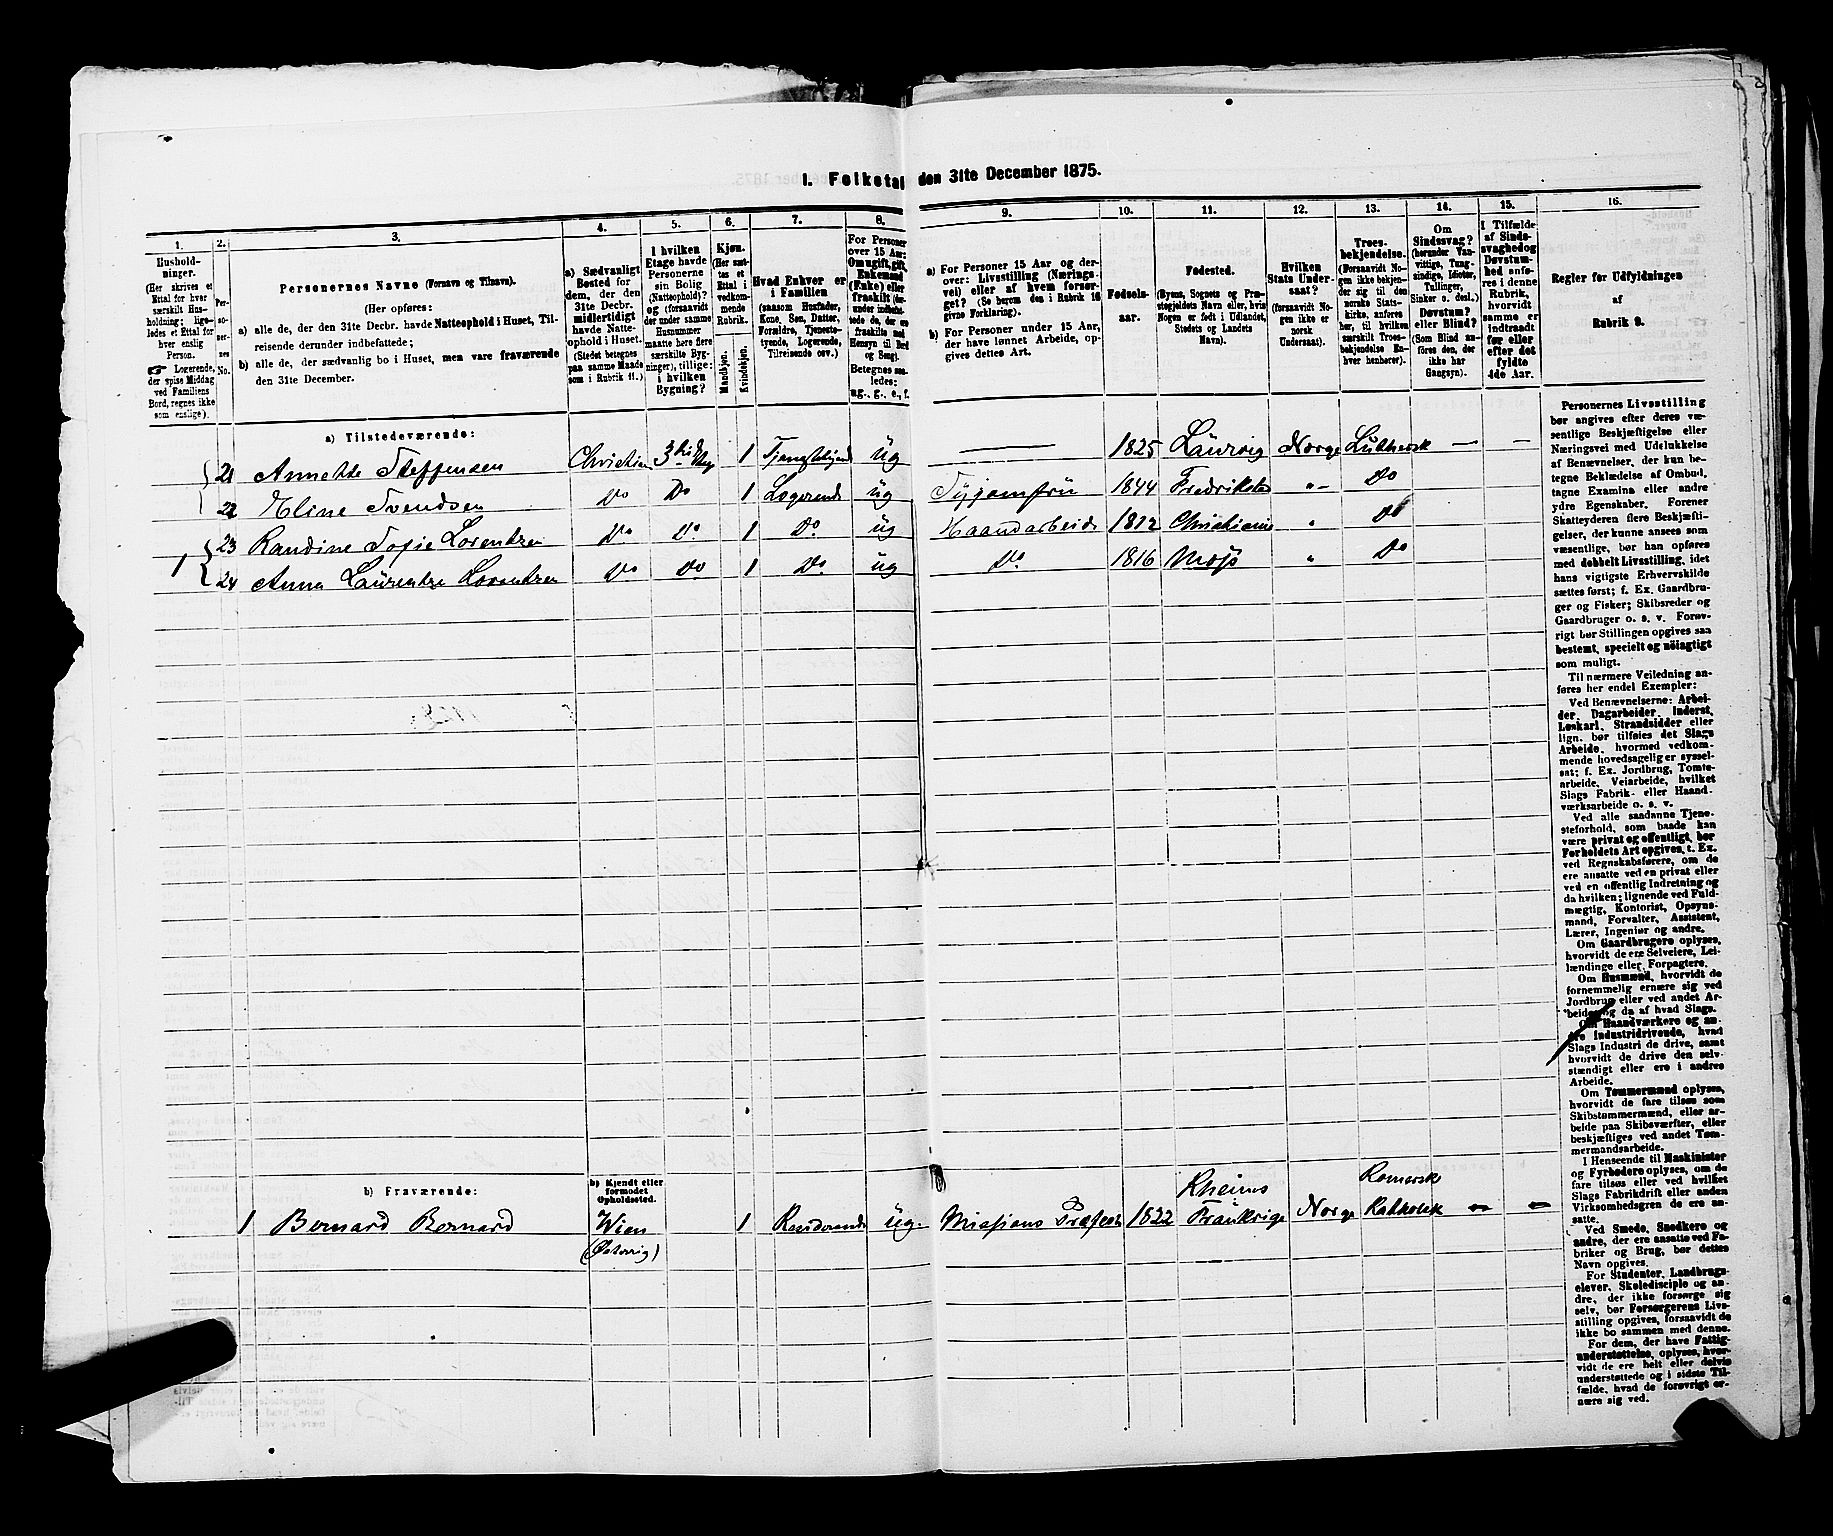 1. Folketal den 31te December 1875.
1. 2. 3. 4. 5. 6. 7. 8. 9. 10. 11. 12. 13. 14. 15. 16.
Hushold-
ninger.
(Her skrives et
Ettal for hver
særskilt Hus-
holdning; lige-
ledes et Ettal for
hver enslig
Person.
☞ Logerende,
der spise Middag
ved Familiens
Bord, regnes ikke
som enslige).
Per-
so-
ner-
nes
No.
Personernes Navne (Fornavn og Tilnavn).
(Her opføres:
a) alle de, der den 31te Decbr. havde Natteophold i Huset, Til-
reisende derunder indbefattede;
b) alle de, der sædvanlig bo i Huset, men vare fraværende
den 31te December.
a) Sædvanligt
Bosted for
dem, der den
31te Decbr.
midlertidigt
havde Natte-
ophold i Huset.
(Stedet betegnes
paa samme Maade
som i Rubrik 11.)
I hvilken
Etage havde
Personerne
sin Bolig
(Natteophold)?
og (forsaavidt
der under samme
Husnummer
maatte høre flere
særskilte Byg-
ninger), tillige:
i hvilken
Bygning?
Kjøn.
(Her sæt-
tes et
Ettal i
vedkom-
mende
Rubrik.
Mandkjøn.
Kvindekjøn.
Hvad Enhver er
i Familien
(saasom Husfader,
Kone, Søn, Datter,
Forældre, Tjeneste-
tyende, Logerende,
Tilreisende osv.)
For Personer
over 15 Aar:
Om ugift, gift,
Enkemand
(Enke) eller
fraskilt
Hensyn til Bord
og Seng).
Betegnes saa-
ledes:
ug., g., e., f.
a) For Personer 15 Aar og der-
over: Livsstilling (Nærings-
vei) eller af hvem forsør-
get? (Se herom den i Rubrik 16
givne Forklaring).
b) For Personer under 15 Aar,
der have lønnet Arbeide, op-
gives dettes Art.
Fødsels-
aar.
Fødested.
(Byens, Sognets og Præ-
stegjeldets Navn eller, hvis
Nogen er født i Udlandet,
Stedets og Landets
Navn).
Hvilken
Stats Under-
saat?
(forsaavidt No-
gen ikke er
norsk
Undersaat).
Troes-
bekjendelse.
(Forsaavidt No-
gen ikke bekjen-
der sig til den
norske Stats-
kirke, anføres
her, til hvilken
særskilt Troes-
bekjendelse En-
hver henhører).
Om
Sindssvag?
(herunder Van-
vittige, Tung-
sindige, Idioter,
Tullinger,
Sinker o. desl.)
Døvstum?
eller Blind?
(Som Blind an-
føres den, der
ikke har
Gangsyn).
I Tilfælde
af Sinds-
svaghed og
Døvstum-
hed anfø-
res i denne
Rubrik,
hvorvidt
samme er
indtraadt
før eller
efter det
fyldte
4de Aar.
Regler for Udfyldningen
af
Rubrik 9.
a) Tilstedeværende:
21 Annette Steffensen 3die Etag 1 ug — 1825 Laurvig Norge Luthersk — —
22 Eline Svendsen Do Do 1 Logerende ug Syjomfru 1844 Fredriksta „ Do
23 Randine Sofie Lorentzen Do Do 1 Do ug Haandarbeide 1812 Christiania „ Do
1 24 Anna Laurentze Lorentzen Do Do 1 Do ug Do 1816 Moss „ Do
b) Fraværende:
b) Kjendt eller
formodet
Opholdssted.
1 Bernard Bernard Wien 1 ug. Missions Præfect 1822 Rheims Frankrige Norge Romersk Katholsk — —
(Østerrig)
Personernes Livsstilling
bør angives efter deres væ-
sentlige Beskjæftigelse eller
Næringsvei med Udelukkelse
af Benævnelser, der kun be-
tegne Beklædelse af Ombud,
tagne Examina eller andre
ydre Egenskaber. Forener
Skatteyderen flere Beskjæfti-
gelser, der kunne ansees som
væsentlige, bør han opføres
med dobbelt Livsstilling, idet
hans vigtigste Erhvervskilde
sættes først; f. Ex. Gaardbru-
ger og Fisker; Skibsreder og
Gaardbruger o. s. v. Forøv-
rigt bør Stillingen opgives saa
bestemt, specielt og nøiagtigt
som muligt.
Til nærmere Veiledning an-
føres her endel Exempler:
Ved Benævnelserne: Arbei-
der, Dagarbeider, Inderst,
Løskarl, Strandsidder eller
lign. bør tilføies det Slags
Arbeide, hvormed vedkom-
mende hovedsagelig er syssel-
sat; f. Ex. Jordbrug, Tomte-
arbeide, Veiarbeide, hvilket
Slags Fabrik- eller Haand-
værksarbeide o. s. v.
Ved alle saadanne Tjene-
steforhold, som baade kan
være privat og offentligt, bør
Forholdets Art opgives, t. Ex.
ved Regnskabsførere, om de
ere ansatte ved en privat eller
ved en offentlig Indretning og
da hvilken; lignende ved Fuld-
mægtig, Kontorist, Opsyns-
mand, Forvalter, Assistent,
Lærer, Ingeniør og andre.
Om Gaardbrugere oplyses,
hvorvidt de ere Selveiere, Lei-
lændinge eller Forpagtere.
Om Husmænd, hvorvidt de
fornemmelig ernære sig ved
Jordbrug eller ved andet Ar-
beide og da af hvad Slags.
Om Haandværkere og an-
dre Industridrivende, hvad
Slags Industri de drive, samt
hvorvidt de drive den selv-
stændigt eller ere i andres
Arbeide.
Om Tømmermænd oplyses,
hvorvidt de fare tilsøs som
Skibstømmermænd, eller ar-
beide paa Skibsværfter, eller
beskjæftiges ved andet Tøm-
mermandsarbeide.
I Henseende til Maskinister
og Fyrbødere oplyses, om de
fare tilsøs eller ved hvilket
Slags Fabrikdrift eller anden
Virksomhedsgren de ere an-
satte.
Ved Smede, Snedkere og
andre, der ere ansatte ved Fa-
briker og Brug, bør dettes
Navn opgives.
For Studenter, Landbrugs-
elever, Skoledisciple og an-
dre, der ikke forsørge sig
selv, bør Forsørgerens Livs-
stilling opgives, forsaavidt de
ikke bo sammen med denne.
For dem, der have Fattig-
understøttelse, oplyses, hvor-
vidt de ere helt eller delvis
understøttede og i sidste Til-
fælde, hvad de forøvrigt er-
nære sig ved.